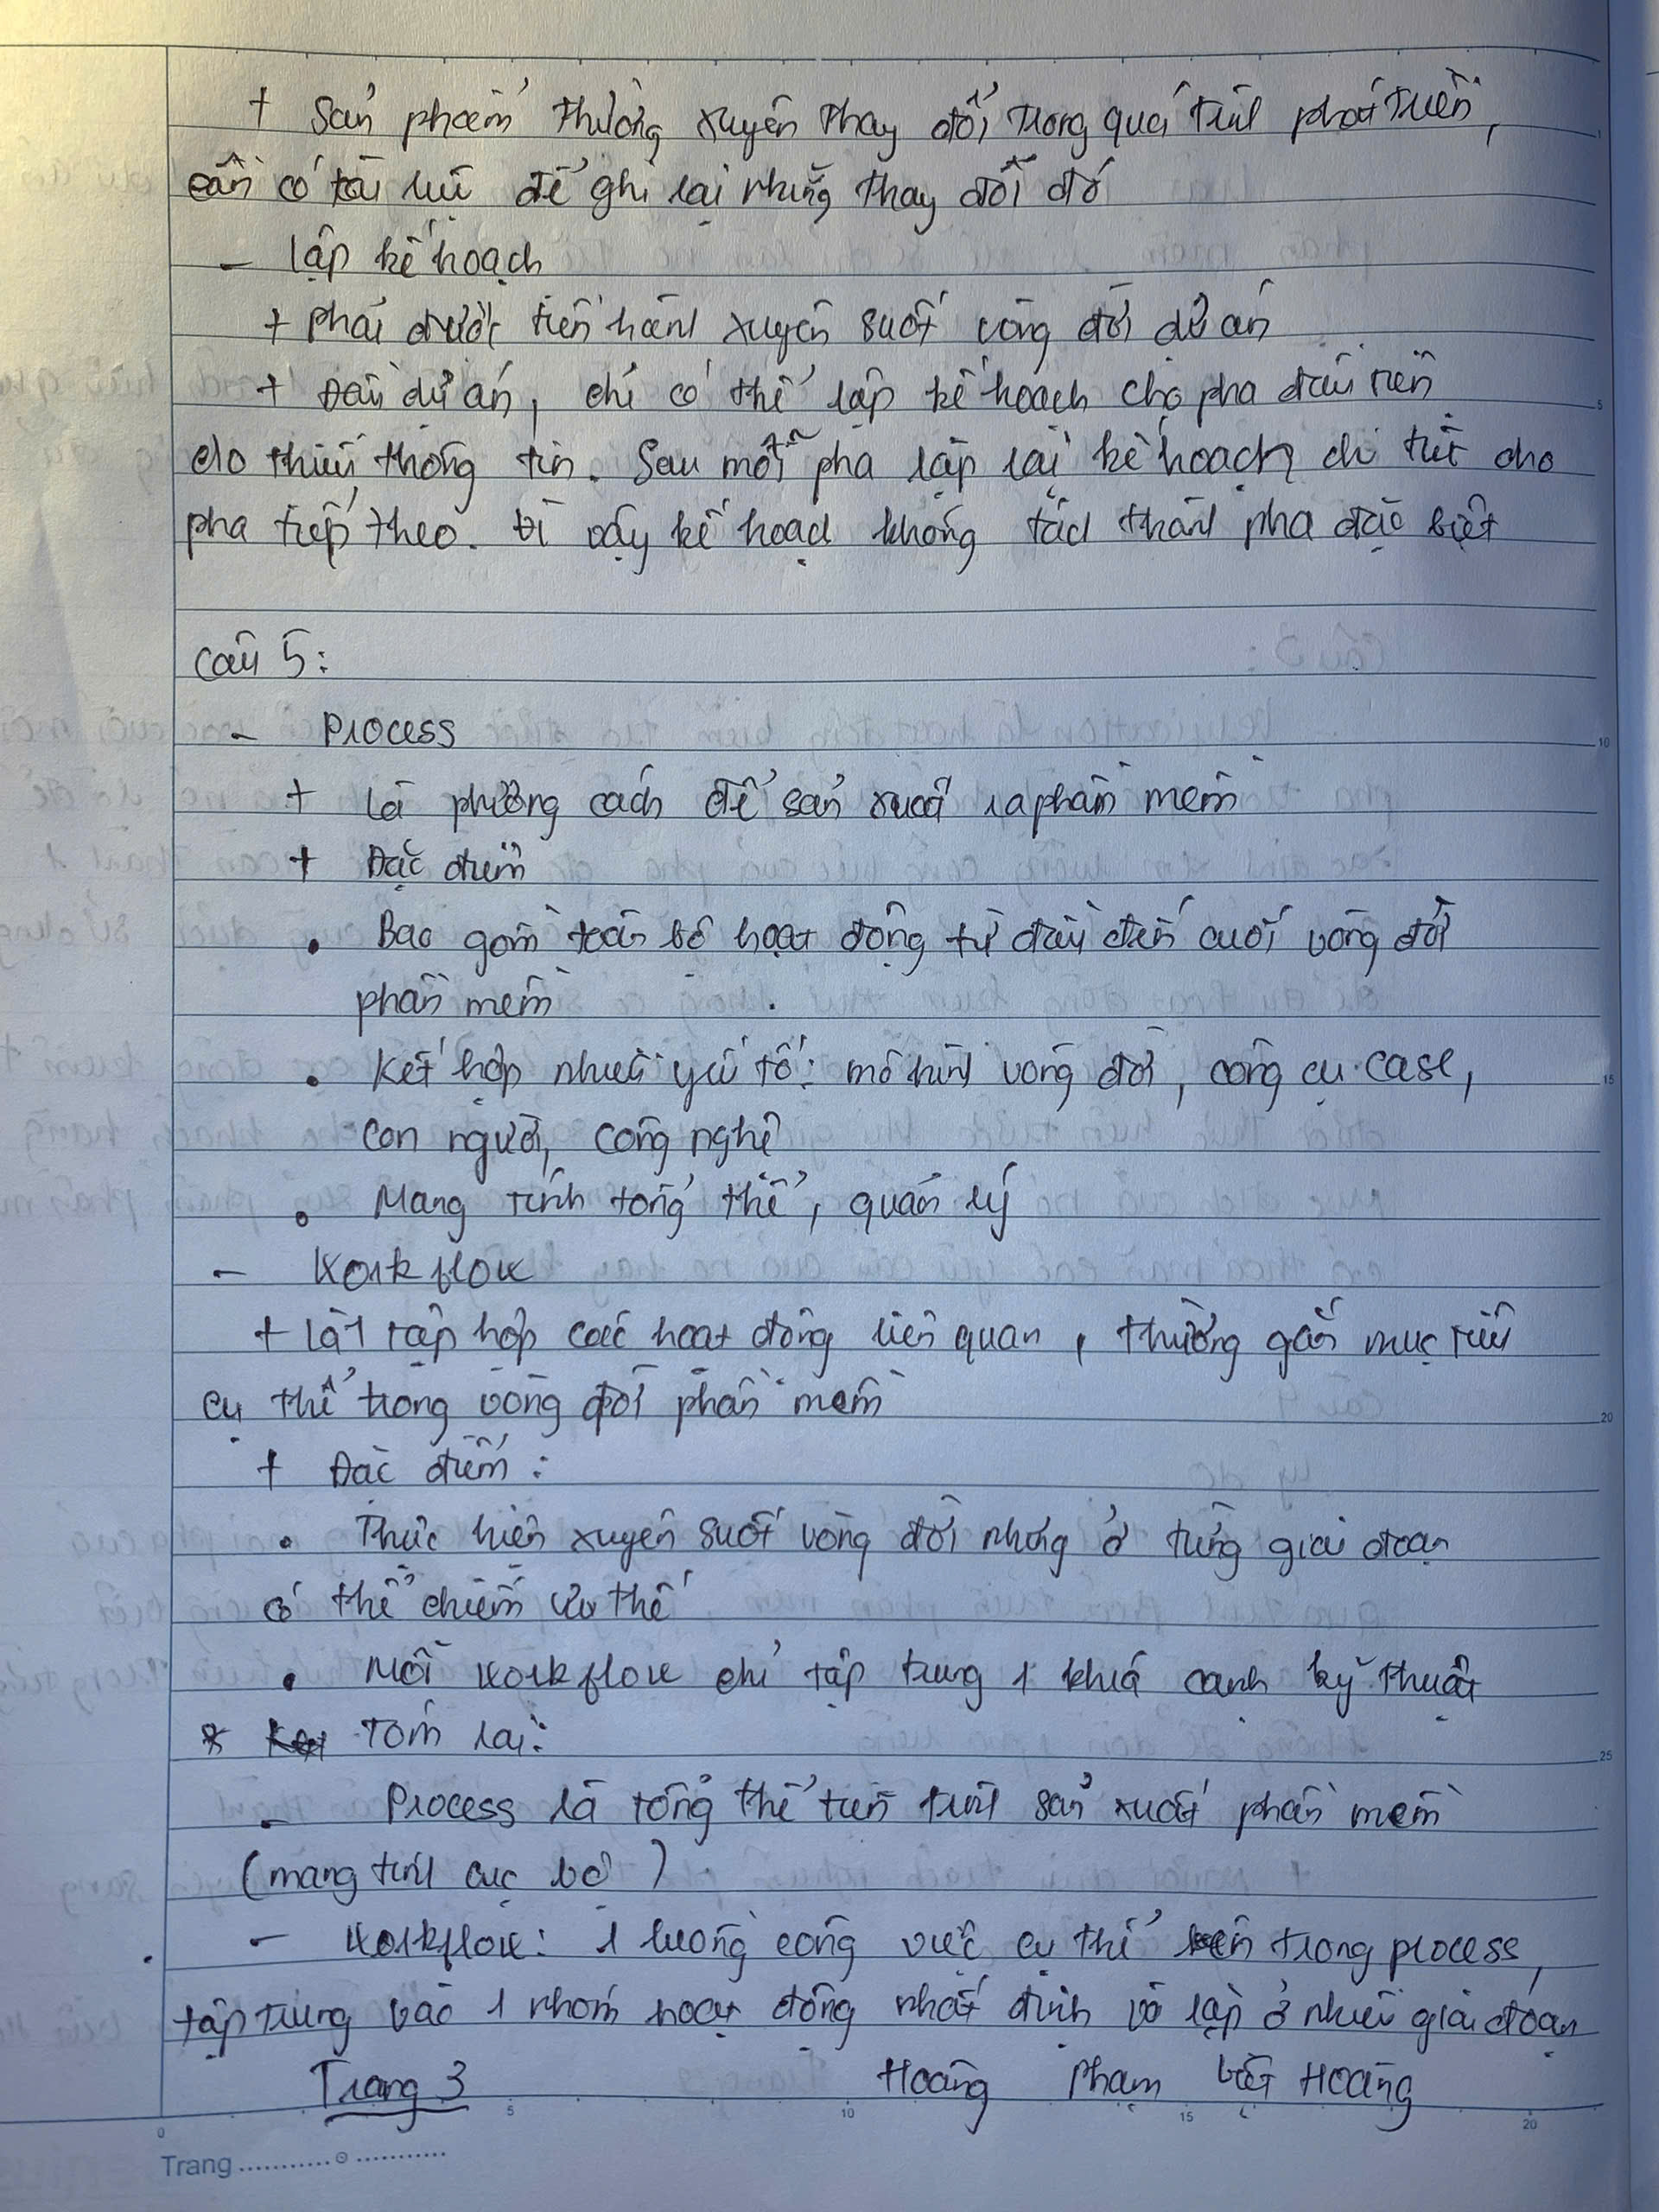 + Sản phẩm thường xuyên thay đổi trong quá trình phát triển,
cần có tài liệu để ghi lại những thay đổi đó
- Lập kế hoạch
+ Phải được tiến hành xuyên suốt vòng đời dự án
+ Đầu dự án, chỉ có thể lập kế hoạch cho pha đầu tiên
do thiếu thông tin. Sau mỗi pha lập lại kế hoạch chi tiết cho
pha tiếp theo. Vì vậy kế hoạch không tách thành pha đặc biệt
Câu 5:
- Process
+ Là phương cách để sản xuất ra phần mềm
+ Đặc điểm
• Bao gồm toàn bộ hoạt động từ đầu đến cuối vòng đời
phần mềm
• Kết hợp nhiều yếu tố: mô hình vòng đời, công cụ case,
con người, công nghệ
• Mang tính tổng thể, quản lý
- Workflow
+ Là 1 tập hợp các hoạt động liên quan, thường gắn mục tiêu
cụ thể trong vòng đời phần mềm
+ Đặc điểm:
• Thực hiện xuyên suốt vòng đời nhưng ở từng giai đoạn
có thể chiếm ưu thế
• Mỗi workflow chỉ tập trung 1 khía cạnh kỹ thuật
* Tóm lại:
- Process là tổng thể tiến trình sản xuất phần mềm
(mang tính cục bộ)
- Workflow: 1 luồng công việc cụ thể trong process,
tập trung vào 1 nhóm hoạt động nhất định và lặp ở nhiều giai đoạn
Trang 3 Hoàng Phạm Việt Hoàng
Trang